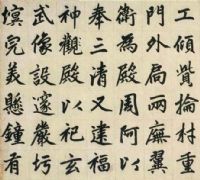 工傾貲掄材重
門外局兩廡翼
衛為殿周阿以
奉三清又建福
神觀殿以祀玄
武像設邃嚴圬
塓完美懸鐘有